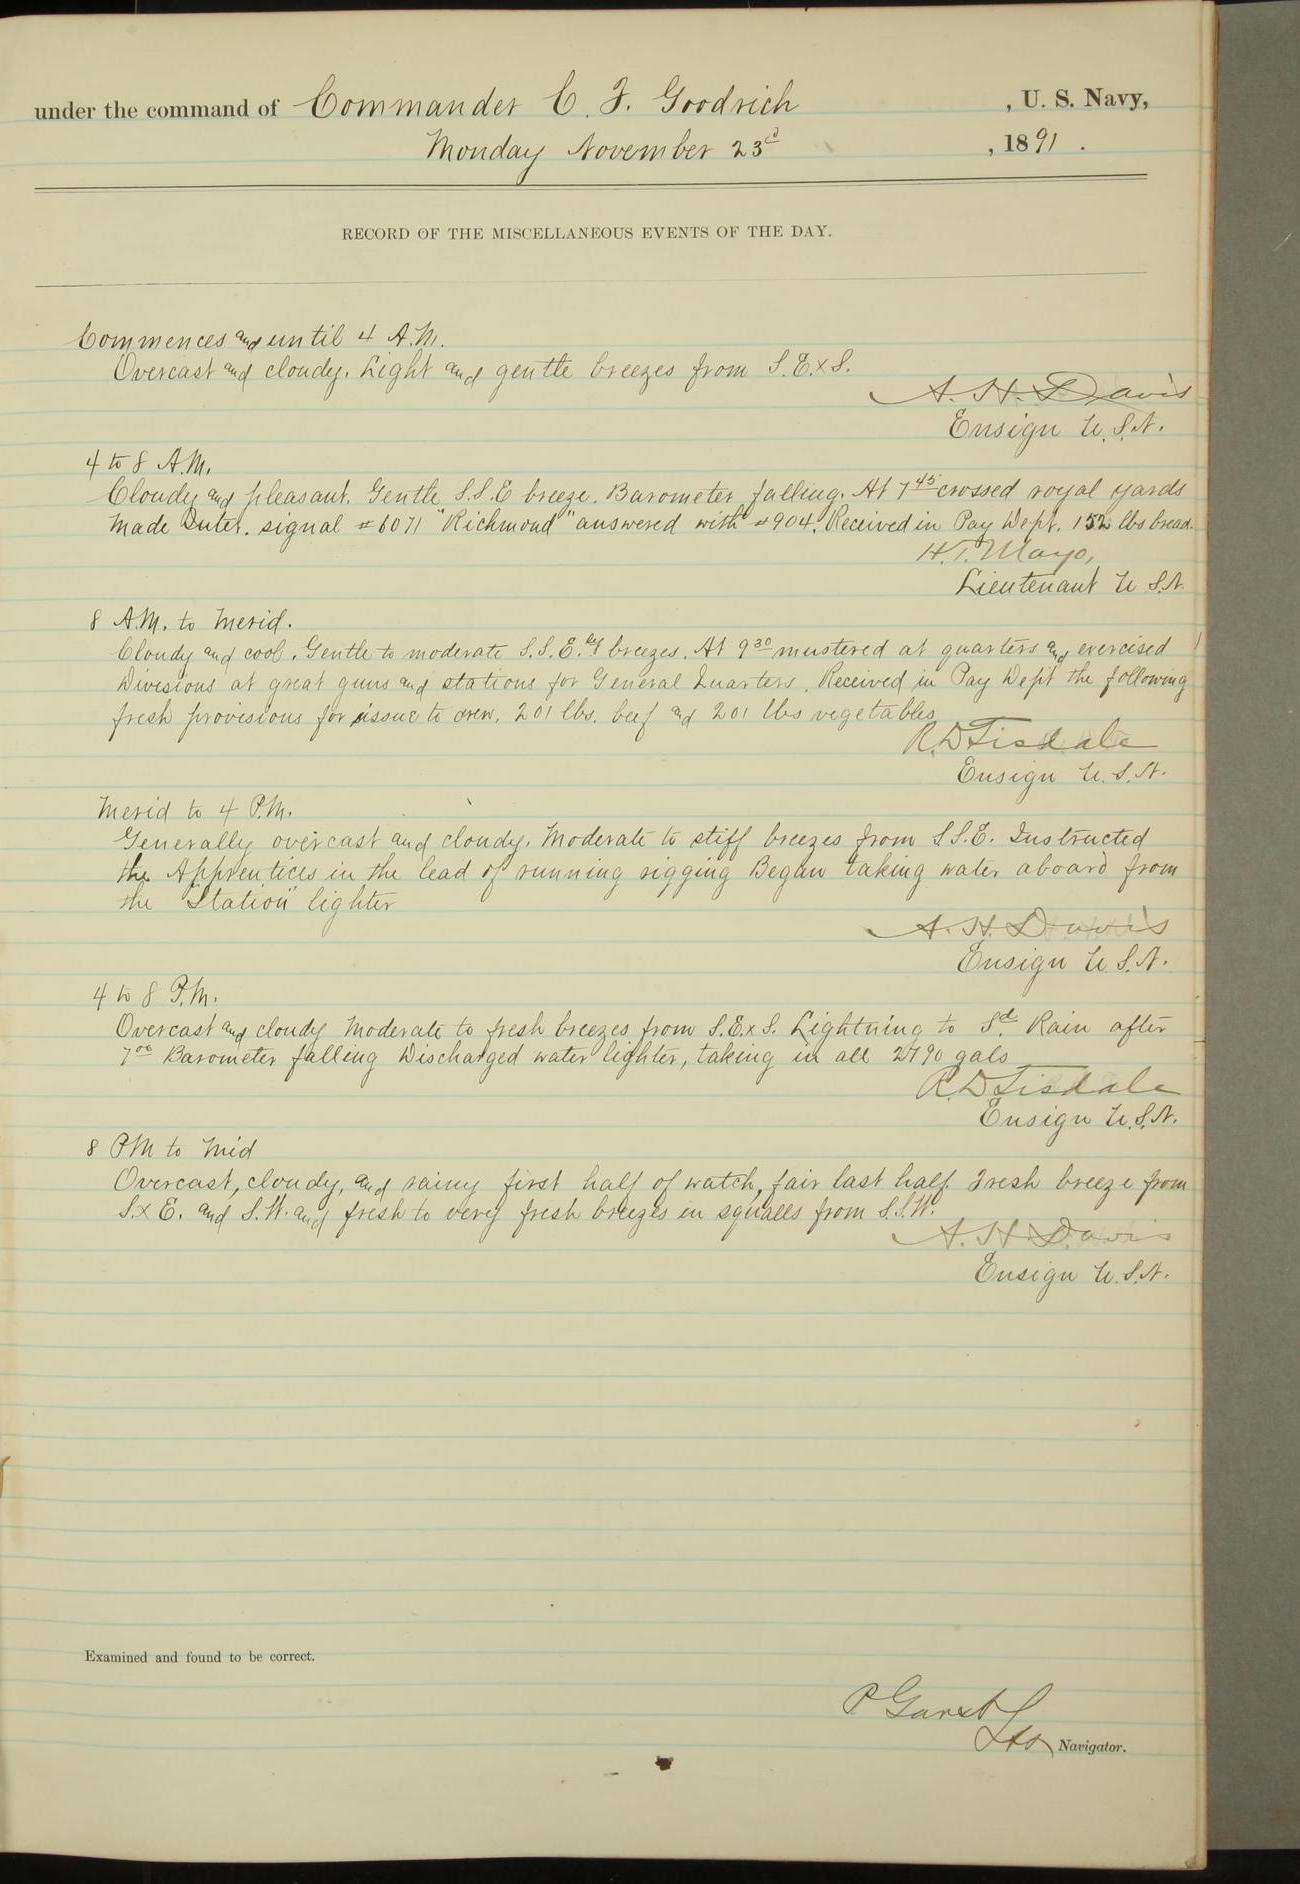 under the command of Commander C. F. Goodrich , U. S. Navy,
Monday November 23d , 1891 .
RECORD OF THE MISCELLANEOUS EVENTS OF THE DAY.
Commences and until 4 A.M.
Overcast and cloudy. Light and gentle breezes from S.E.xS.
A. H. Davis
Ensign U.S.N.
4 to 8 A.M.
Cloudy and pleasant. Gentle S.S.E breeze. Barometer falling. At 7 45 crossed royal yards
Made Inter. signal #6071 "Richmond" answered with #904. Received in Pay Dept. 152 lbs bread.
H.T. Mayo,
Lieutenant U S.N.
8 A.M. to Merid.
Cloudy and cool. Gentle to moderate S.S.E.ly breezes. At 9 30 mustered at quarters and exercised
Divisions at great guns and stations for General Quarters. Received in Pay Dep't the following
fresh provisions for issue to crew. 201 lbs. beef and 201 lbs vegetables
R.D Tisdale
Ensign U.S.N.
Merid to 4 P.M.
Generally overcast and cloudy. Moderate to stiff breezes from S.S.E. Instructed
the Apprentices in the lead of running rigging Began taking water aboard from
the "Station" lighter
A. H. Davis
Ensign U.S.N.
4 to 8 P.M.
Overcast and cloudy Moderate to fresh breezes from S.E.x S. Lightning to Sd. Rain after
7 00 Barometer falling Discharged water lighter, taking in all 2790 gals
R.D Tisdale
Ensign U.S.N.
8 PM to Mid
Overcast, cloudy, and rainy first half of watch, fair last half. Fresh breeze from
S.x E. and S.W. and fresh to very fresh breezes in squalls from S.S.W.
A. H. Davis
Ensign U.S.N.
Examined and found to be correct.
P Garst
Navigator.